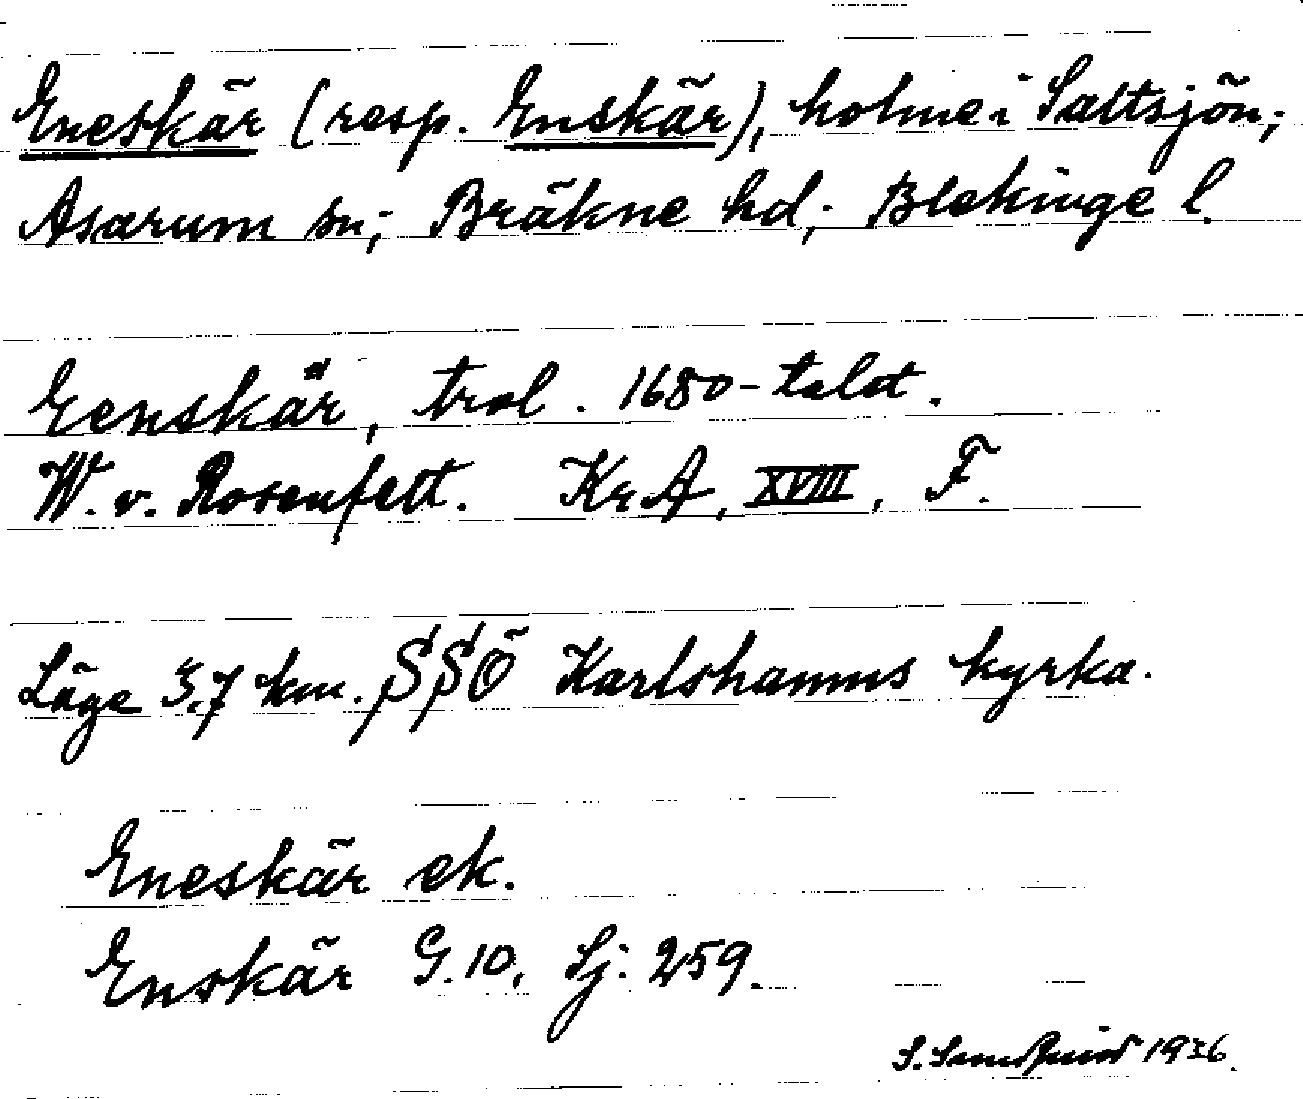 Eneskär (resp. Enskär), holme i Saltsjön;
Asarum sn; Bräkne hd; Blekinge l.
Eenskär, trol. 1680-talet.
W. v. Rosenfelt. KrA, XVIII, F.
Läge 3,7 km. SSÖ Karlshamns kyrka.
Eneskär ek.
Enskär G.10, Sj. 259.
S. 1936.